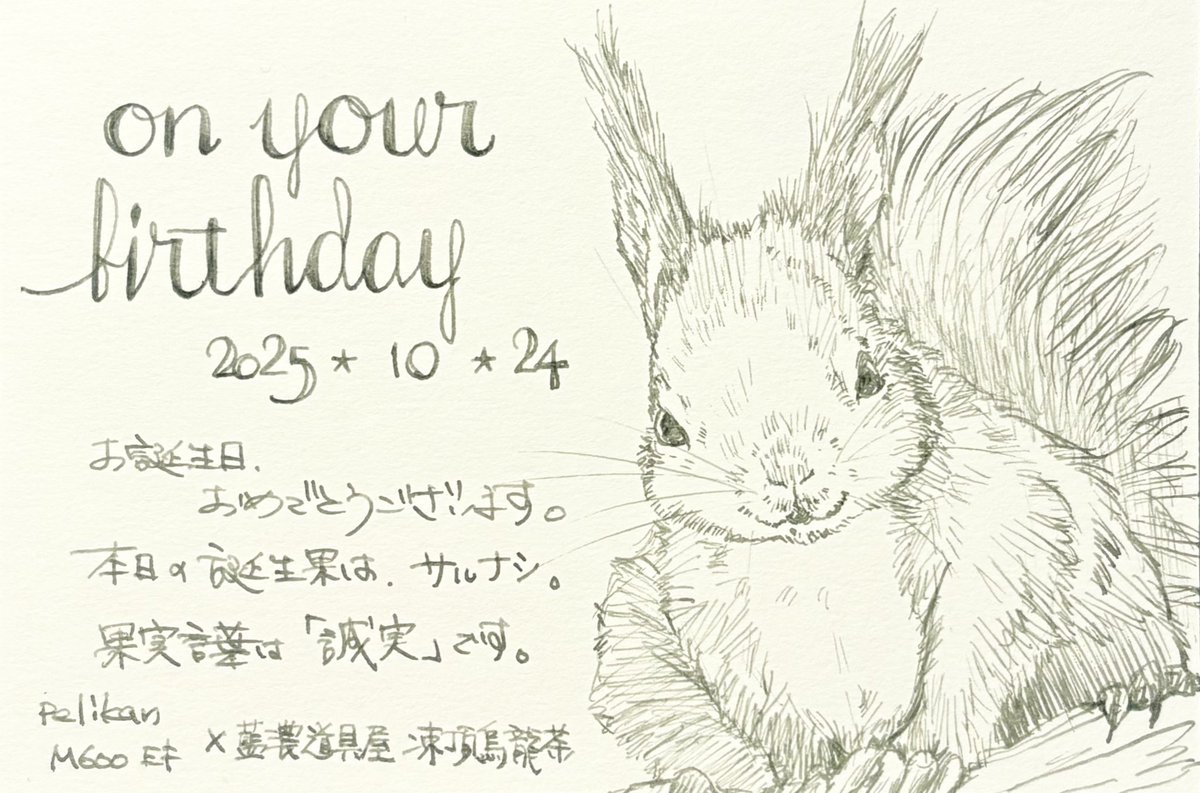 on your
birthday
2025★10★24
お誕生日、
おめでとうございます。
本日の誕生果は、サルナシ。
果実言葉は「誠実」です。
Pelikan
M600 EF × 藍濃道具屋 凍頂烏龍茶